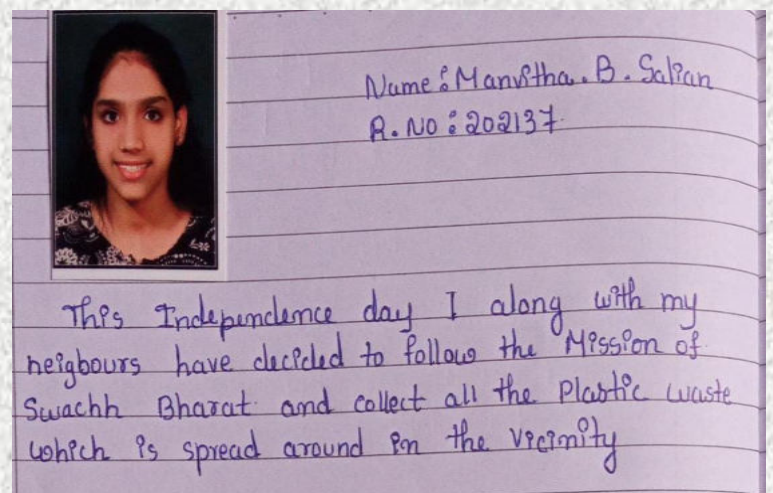 Name : Manvitha . B . Salian
R. No : 202137
This Independence day I along with my
neigbours have decided to follow the Mission of
Swachh Bharat and collect all the Plastic waste
which is spread around in the vicinity